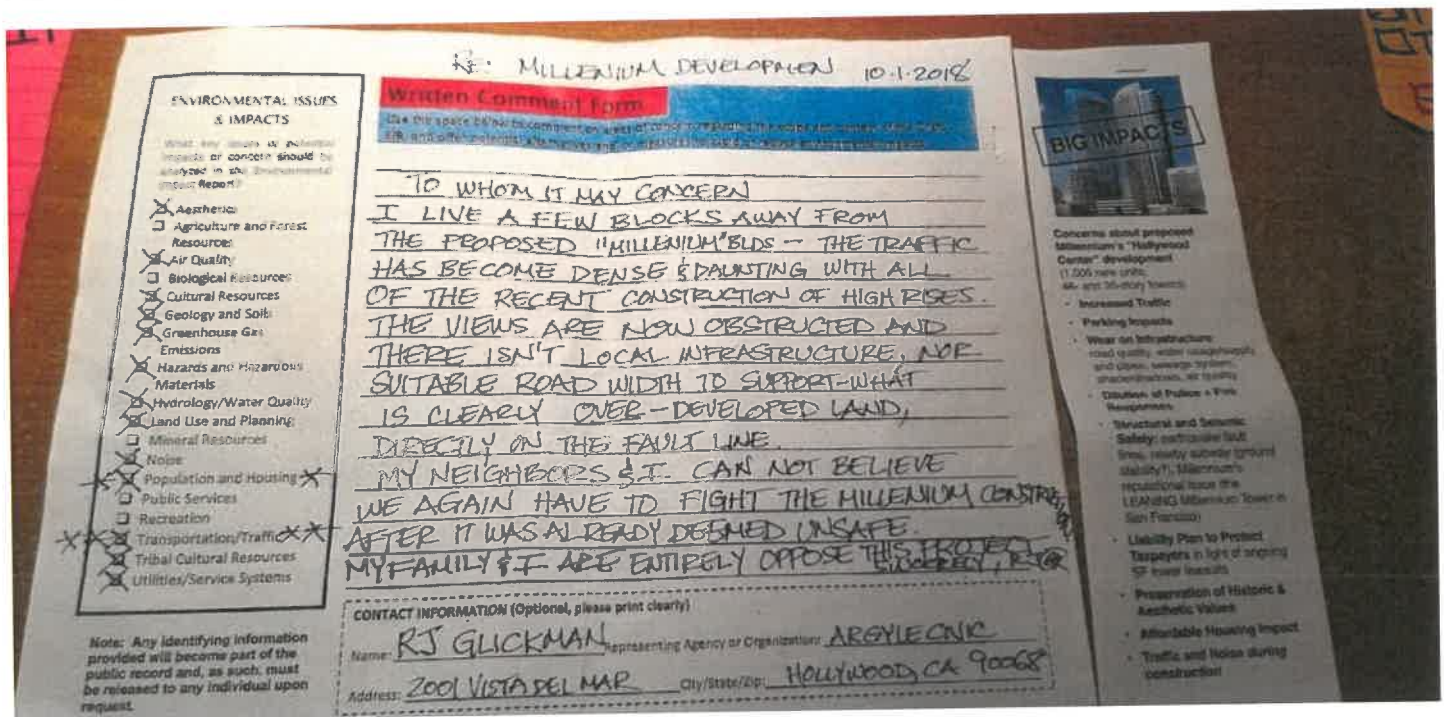 RE: MILLENIUM DEVELOPMEN 10.1.2018
ENVIRONMENTAL ISSUES
& IMPACTS
What key issues or potential
impacts or concern should be
analyzed in the Environmental
Impact Report?
Aesthetics
Agriculture and Forest
Resources
Air Quality
Biological Resources
Cultural Resources
Geology and Soils
Greenhouse Gas
Emissions
Hazards and Hazardous
Materials
Hydrology/Water Quality
Land Use and Planning
Mineral Resources
Noise
Population and Housing
Public Services
Recreation
Transportation/Traffic
Tribal Cultural Resources
Utilities/Service Systems
Note: Any identifying information
provided will become part of the
public record and, as such, must
be released to any individual upon
request.
Written Comment Form
Use the space below to comment on areas of
EIR, and offer potential alternatives and/or measures to
TO WHOM IT MAY CONCERN
I LIVE A FEW BLOCKS AWAY FROM
THE PROPOSED "MILLENIUM" BLDS - THE TRAFFIC
HAS BECOME DENSE & DAUNTING WITH ALL
OF THE RECENT CONSTRUCTION OF HIGH RISES.
THE VIEWS ARE NOW OBSTRUCTED AND
THERE ISN'T LOCAL INFRASTRUCTURE, NOR
SUITABLE ROAD WIDTH TO SUPPORT-WHAT
IS CLEARLY OVER-DEVELOPED LAND,
DIRECTLY ON THE FAULT LINE.
MY NEIGHBORS & I CAN NOT BELIEVE
WE AGAIN HAVE TO FIGHT THE MILLENIUM CONSTRUCTION
AFTER IT WAS ALREADY DEEMED UNSAFE.
MY FAMILY & I ARE ENTIRELY OPPOSE THIS PROJECT
SINCERELY,
CONTACT INFORMATION (Optional, please print clearly)
Name: RJ GLICKMAN Representing Agency or Organization: ARGYLE CIVIC
Address: 2001 VISTA DEL MAR City/State/Zip: HOLLYWOOD, CA 90068
BIG IMPACTS
Concerns about proposed
Millennium's "Hollywood
Center" development
(1,005 new units,
46- and 35-story towers)
Increased Traffic
Parking Impacts
Wear on Infrastructure:
road quality, water usage/supply
and pipes, sewage system,
shade/shadows, air quality
Dilution of Police + Fire
Responses
Structural and Seismic
Safety: earthquake fault
lines, nearby subway (ground
stability?), Millennium's
reputational issue (the
LEANING Millennium Tower in
San Francisco)
Liability Plan to Protect
Taxpayers in light of ongoing
SF tower lawsuits
Preservation of Historic &
Aesthetic Values
Affordable Housing Impact
Traffic and Noise during
construction